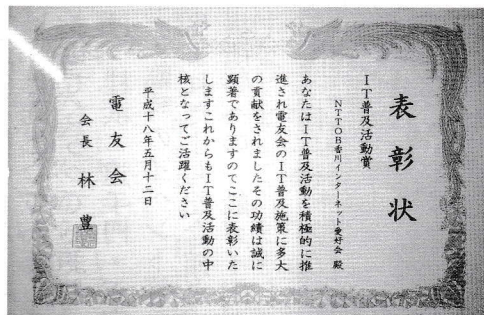 表彰状
IT普及活動賞
NTTOB香川インターネット愛好会 殿
あなたはIT普及活動を積極的に推
進され電友会のIT普及施策に多大
の貢献をされましたその功績は誠に
顕著でありますのでここに表彰いた
しますこれからもIT普及活動の中
核となってご活躍ください
平成十八年五月十二日
電友会
会長 林 豊